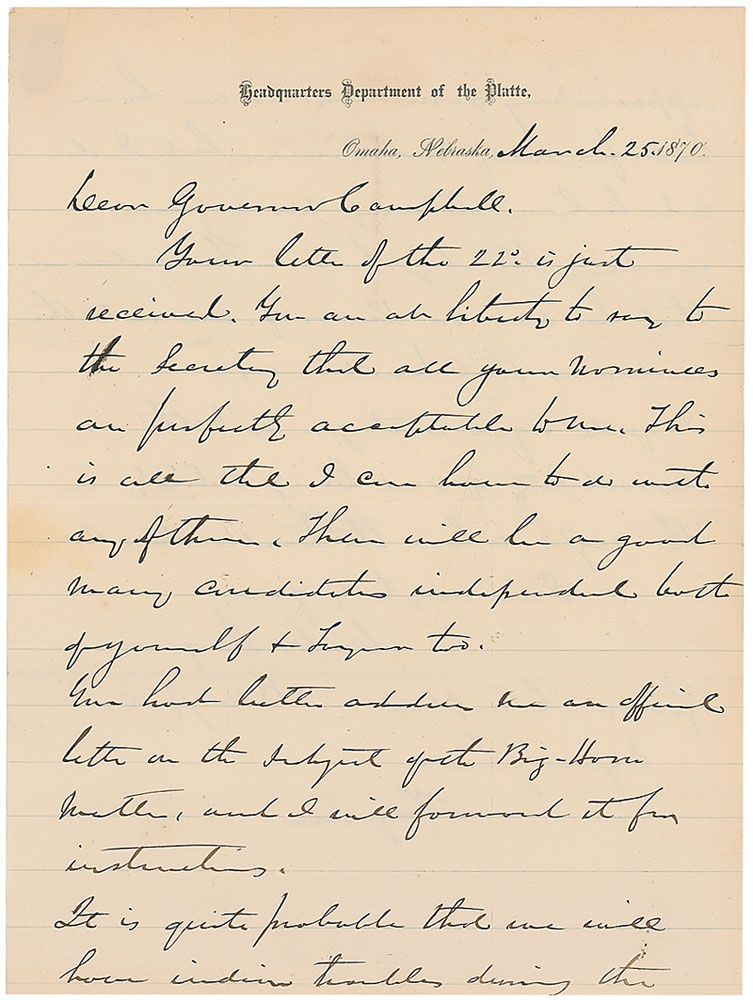 Headquarters Department of the Platte,
Omaha, Nebraska, March. 25. 1870.
Dear Governor Campbell.
Your letter of the 22d. is just
received. You are at liberty to say to
the Secretary that all your nominees
are perfectly acceptable to me. This
is all that I can have to do with
any of them. There will be a good
many candidates independent both
of yourself & too.
You had better address me an official
letter on the subject of the Big-Horn
matter, and I will forward it for
instructions.
It is quite probable that we will
have indian troubles during the